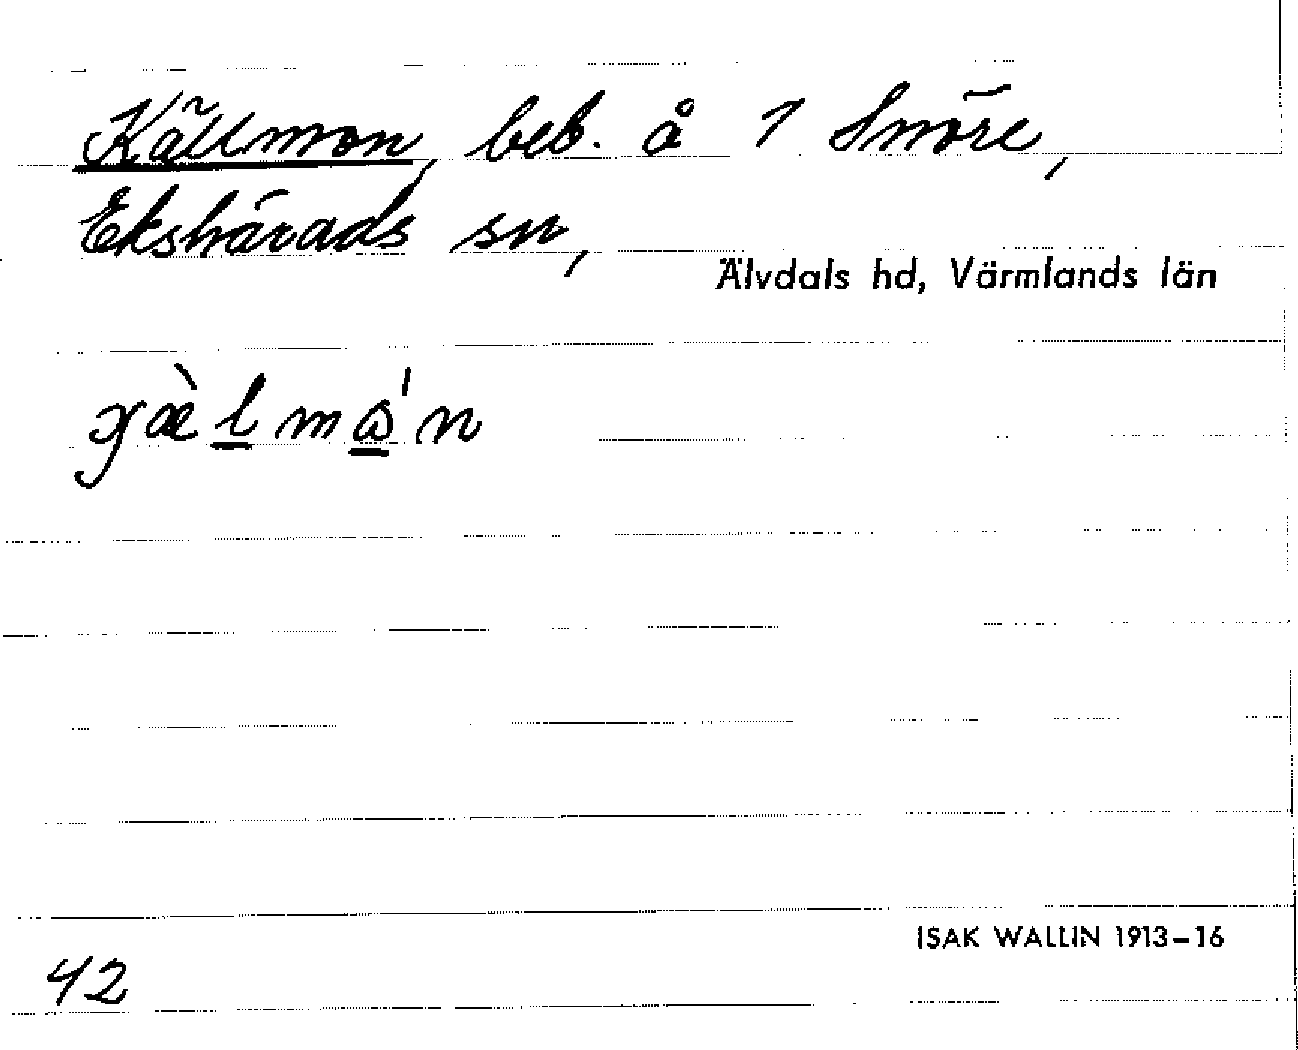 Källmon, beb. å 1 Smöre,
Ekshärads sn,
Älvdals hd, Värmlands län
ISAK WALLIN 1913–16
42